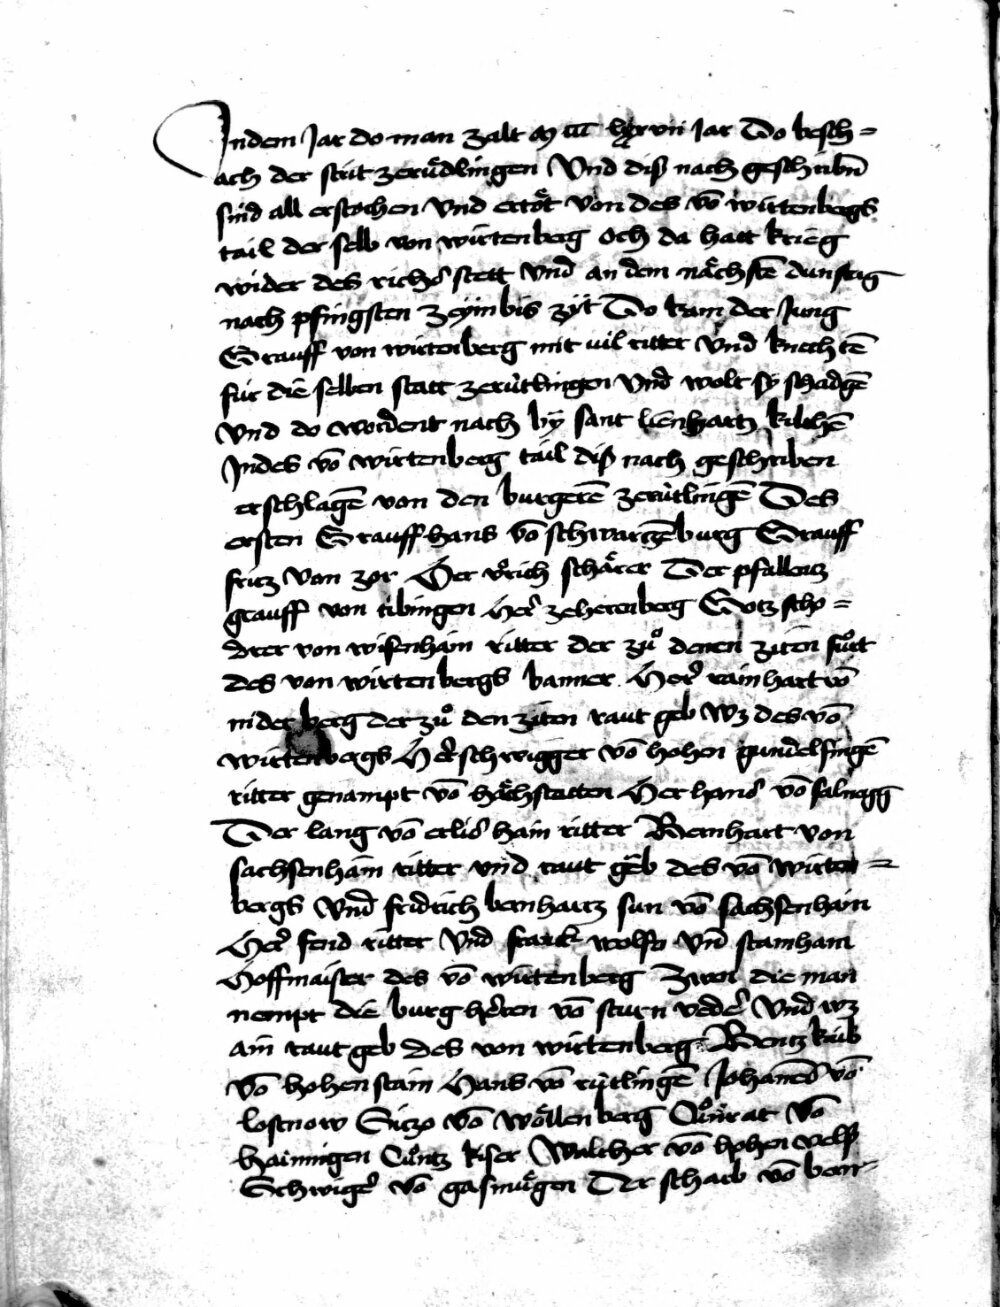 Indem Jar do man zalt m ccc lxxvii Jar Do besch=
ach der strit zerüdlingen Vnd diß nach geschribn̄
sind all erstochen vnd ertöt von des vō wirtenbergs
tail der selb von wirtenberg och da hatt krieg
wider des richs stett vnd an dem nächstē dunstag
nach pfingsten zeyinbis zyt Do kam der Jung
Grauff von wirtenberg mit uil ritter vnd knechtē
für die selben statt zerùtlingen vnd wolt sy schadgē
vnd do wordent nach by sant lienhartz kilchē
Indes vō wirtenberg tail diß nach geschriben
erschlagē von den burgerē zerùtlingē Des
ersten Grauff hans vō schwartzēburg Grauff
fritz von zor Her vͦlrich schärer Der pfallentz
grauff von tibingen Her̄ zeherenberg Gotz scho=
drer von wisenhain ritter der zuͦ denen ziten fuͦrt
des von wirtenbergs banner. Her̄ rainhart vō
niderberg der zuͦ den ziten raut geb wz des vō
wirtenbergs Her̄ schwigger vō hohen gundelfingē
ritter genampt vō hächstetten Her hans vō salnegg
Der lang vō erlishain ritter Bernhart von
sachsenhain ritter vnd raut geb des vō wirten=
bergs vnd fridrich bernhartz sun vō sachsenhain
Her̄ send ritter vnd franck wolfs vn̄ stamham
Hoffmaister des vō wirtenberg Zwen die man
nempt die burg heren vō sturnveder vnd wz
ain raut geb des von wirtenberg Bentz kaib
vō hohenstain Hans vō rùtlingē Johanes vō
lostnow Sitzo vō wöllenberg Cuͦnrat vō
hainingen Cuͦntz kiser Walther vō hohen
Schwiger̄ vō gasmügen Der scharb vō bern